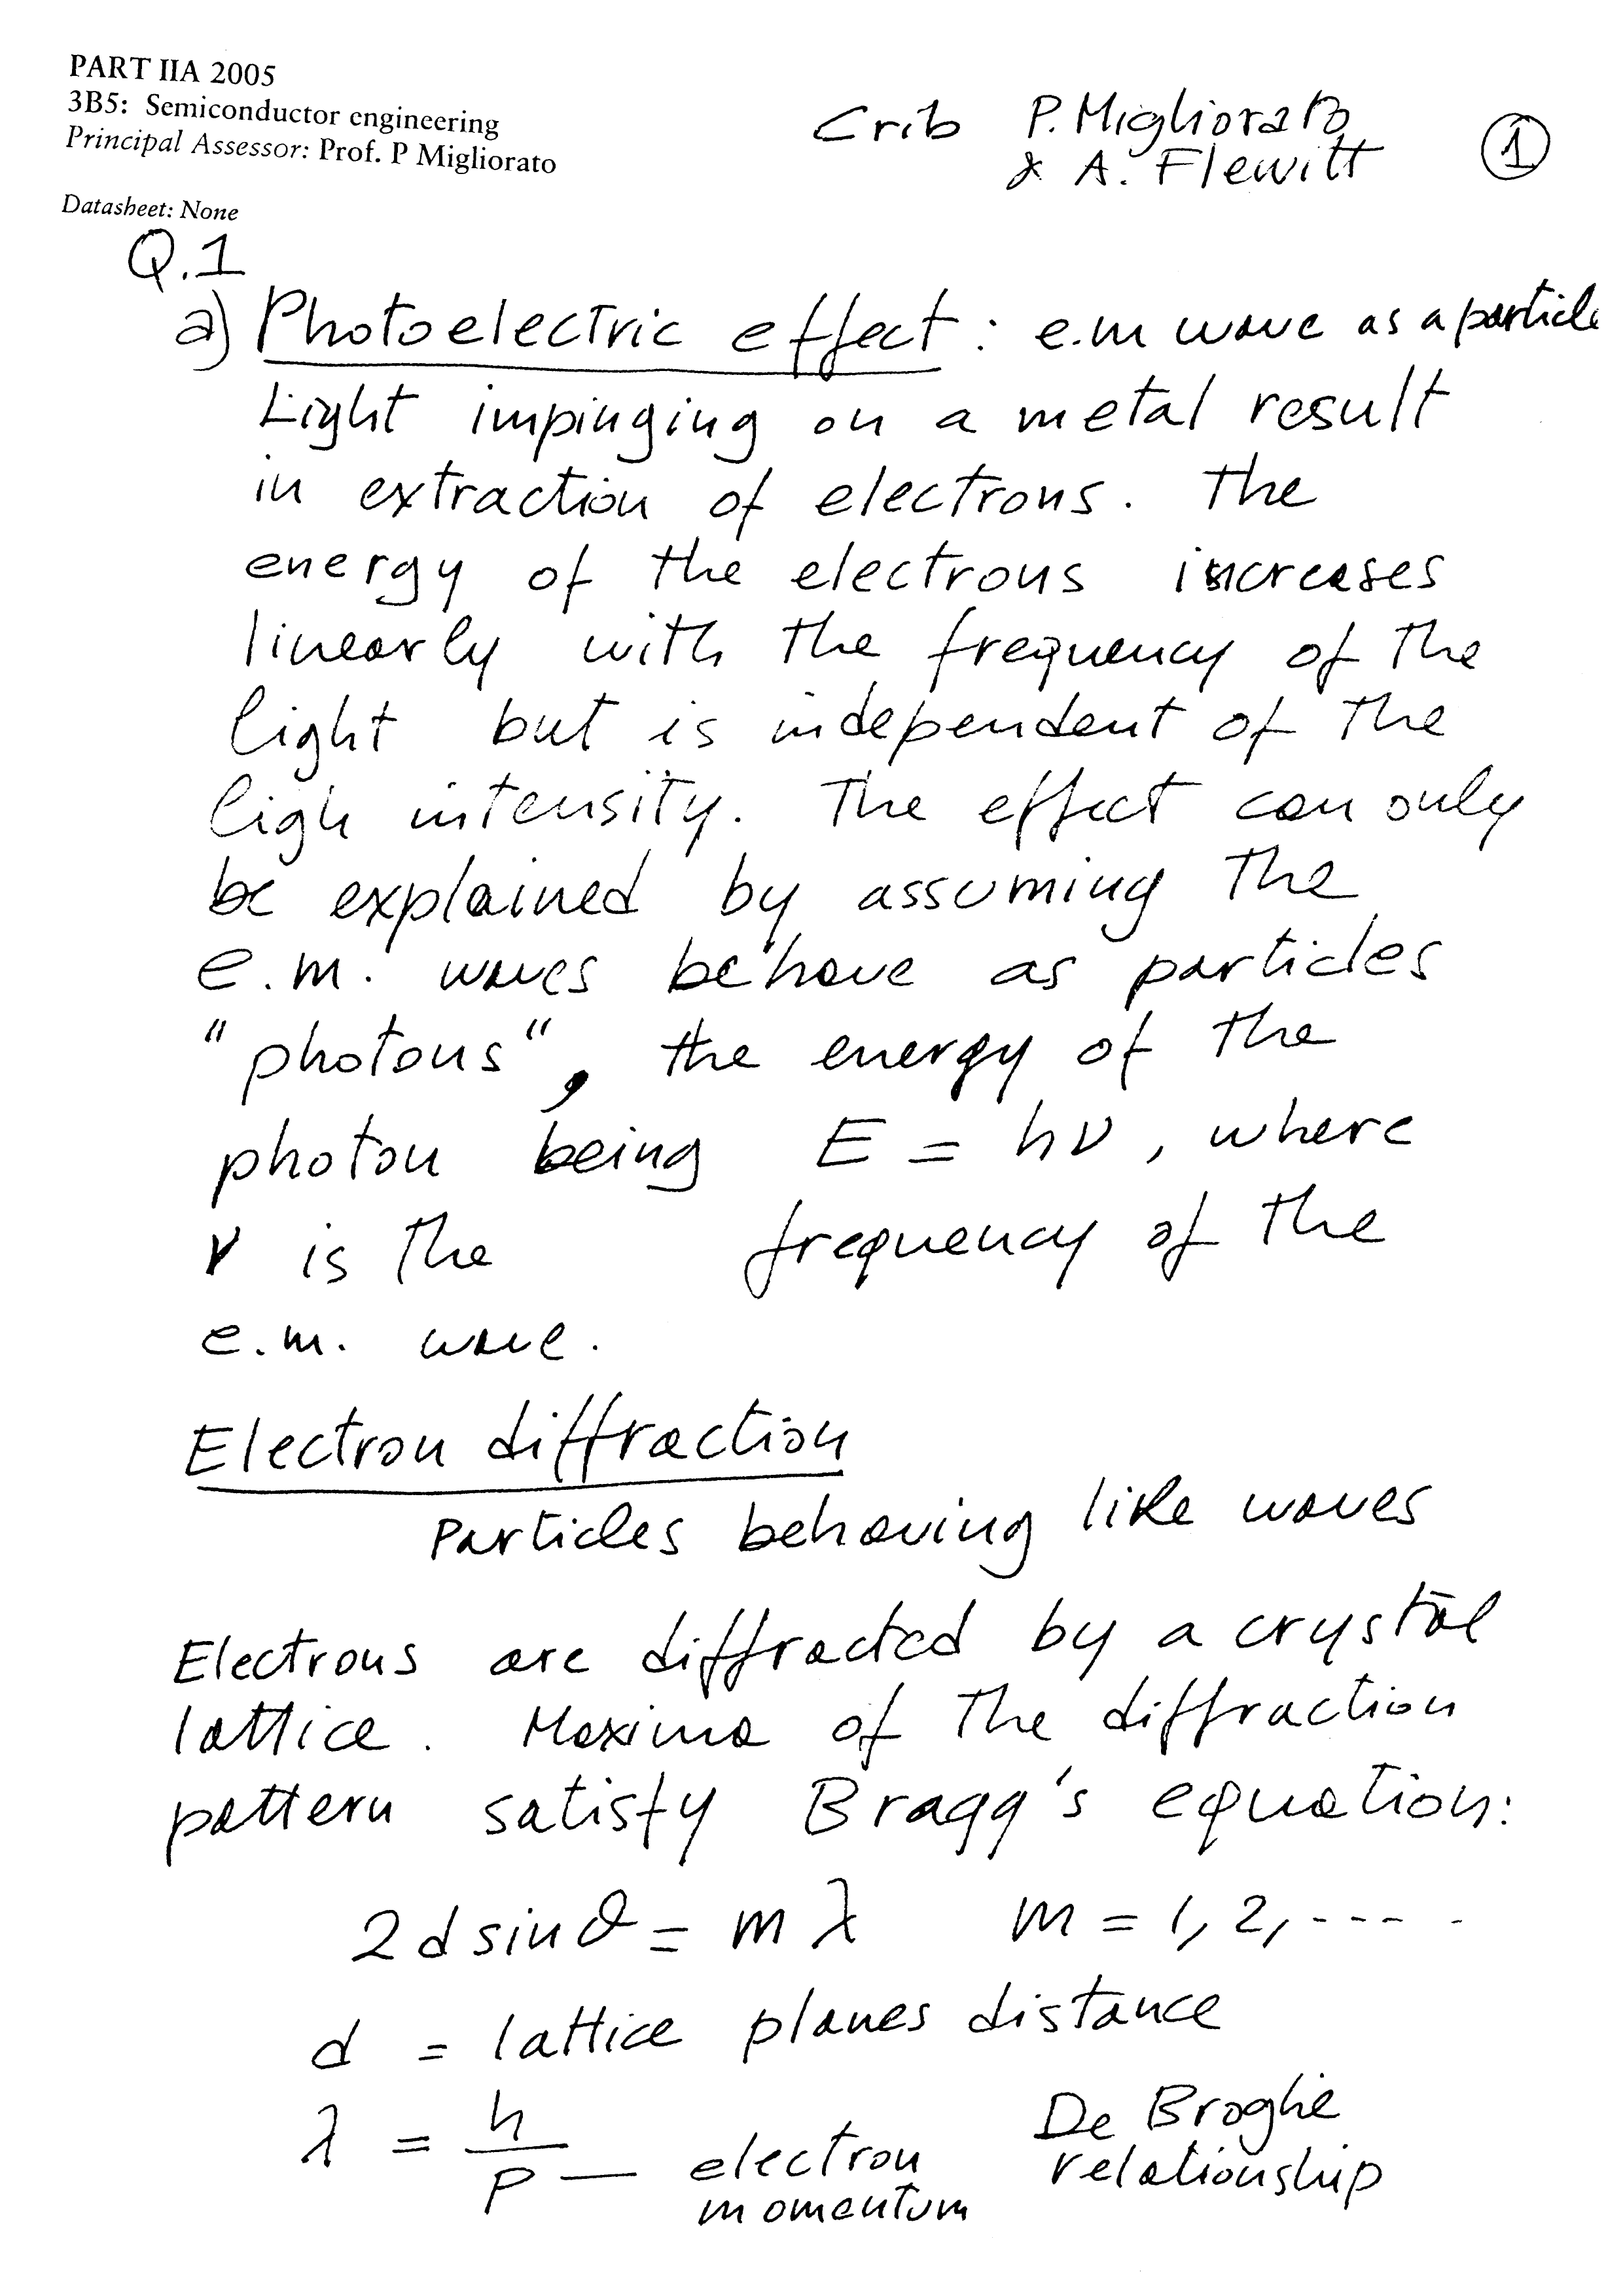 PART IIA 2005
3B5: Semiconductor engineering
Principal Assessor: Prof. P Migliorato
Datasheet: None
Crib P. Migliorato
& A. Flewitt
1
Q.1
a) Photoelectric effect : e.m wave as a particle
Light impinging on a metal result
in extraction of electrons. The
energy of the electrons increases
linearly with the frequency of the
light but is independent of the
ligh intensity. The effect can only
be explained by assuming the
e.m. waves behave as particles
"photons", the energy of the
photon being E = hν, where
ν is the frequency of the
e.m. wave.
Electron diffraction
Particles behaving like waves
Electrons are diffracted by a crystal
lattice. Maxima of the diffraction
pattern satisfy Bragg's equation:
2d sinθ = m λ m = 1, 2, ---- -
d = lattice planes distance
λ = h/p — electron momentum De Broglie relationship